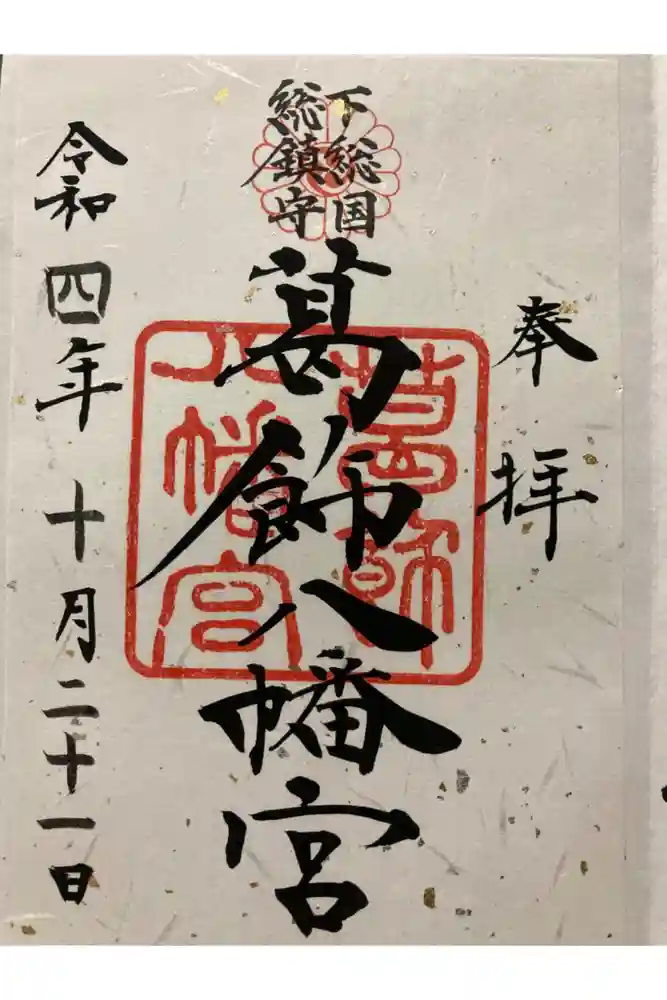 奉拝
下総国
総鎮守
葛飾八幡宮
葛飾
八幡宮
令和四年十月二十一日